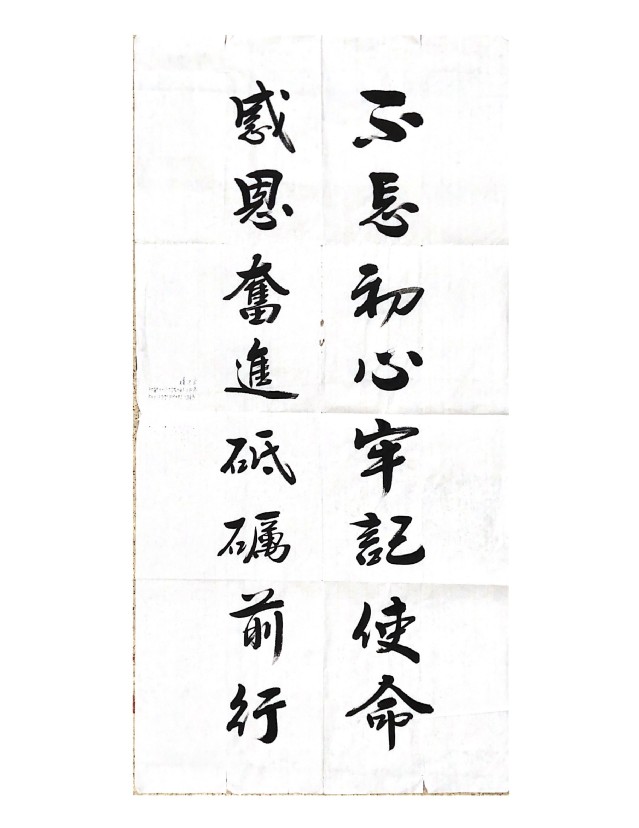 不忘初心牢記使命
感恩奮進砥礪前行